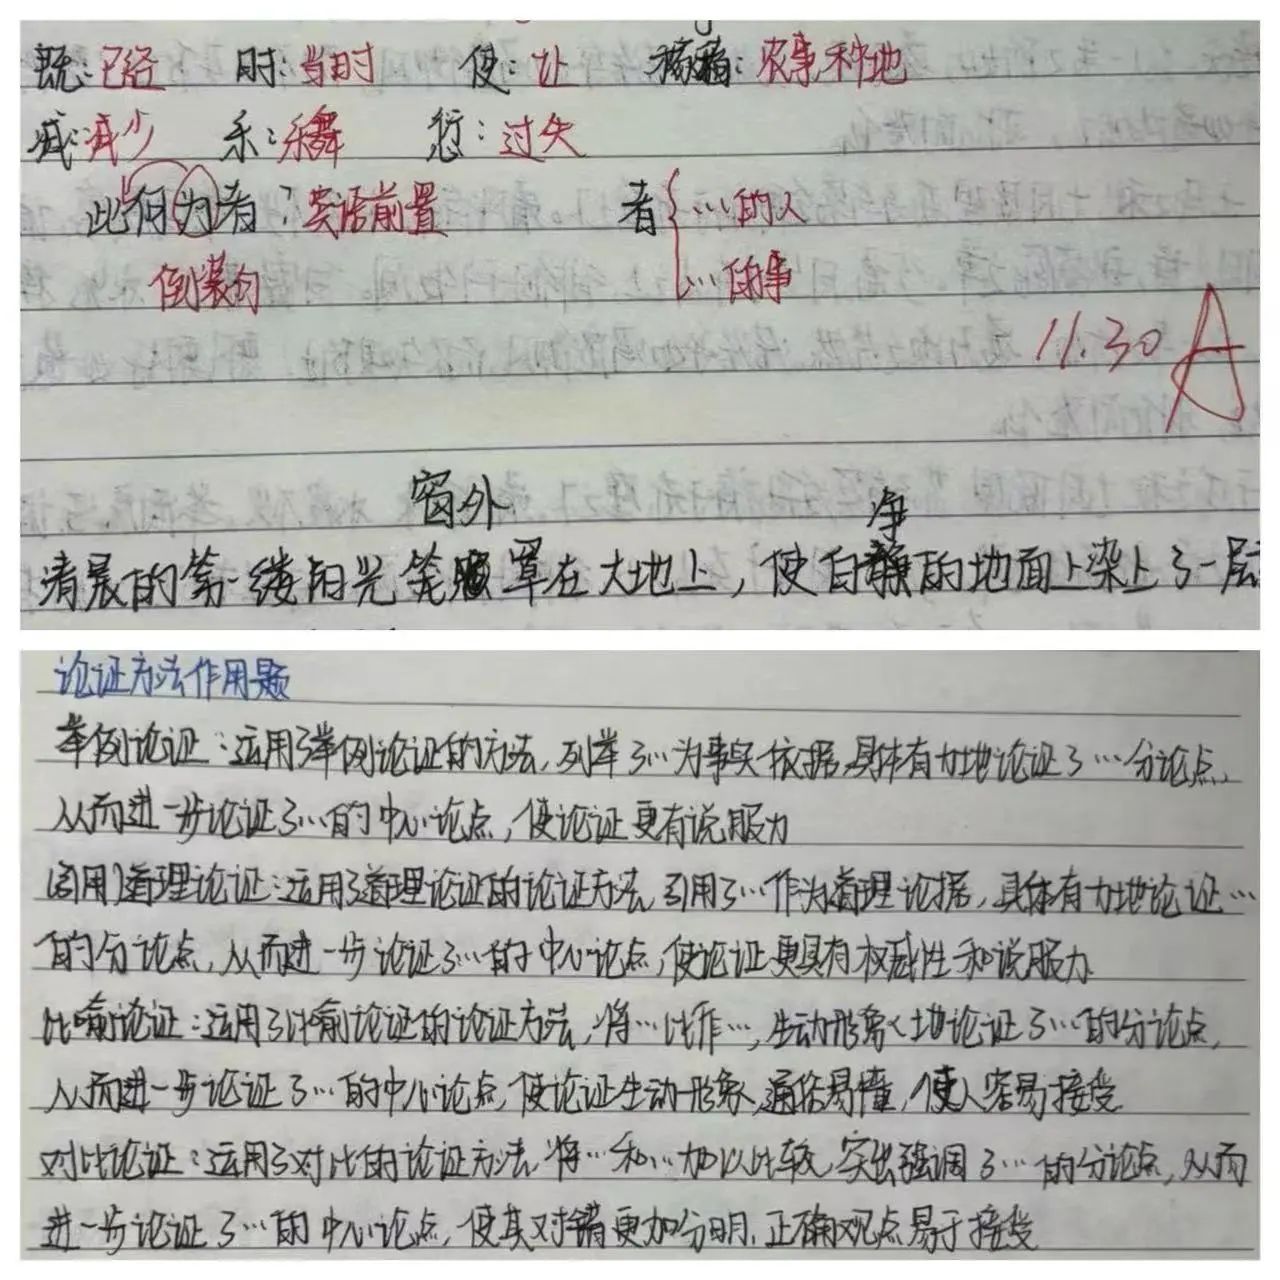 既:已经 时:当时 使:让 稼穑:农事种地
减:减少 乐:乐舞 愆:过失
此何为者?宾语前置 者{…的人
倒装句 …的事
11.30 A
窗外
净
清晨的第一缕阳光笼罩在大地上,使白静的地面上染上了一层
论证方法作用题
举例论证:运用了举例论证的方法,列举了…为事实依据,具体有力地论证了…分论点,
从而进一步论证了…的中心论点,使论证更有说服力
(引用)道理论证:运用了道理论证的论证方法,引用了…作为道理论据,具体有力地论证…
的分论点,从而进一步论证了…的中心论点,使论证更具有权威性和说服力
比喻论证:运用了比喻论证的论证方法,将…比作…,生动形象地论证了…的分论点,
从而进一步论证了…的中心论点,使论证生动形象,通俗易懂,使人容易接受
对比论证:运用了对比的论证方法,将…和…加以比较,突出强调了…的分论点,从而
进一步论证了…的中心论点,使其对错更加分明,正确观点易于接受